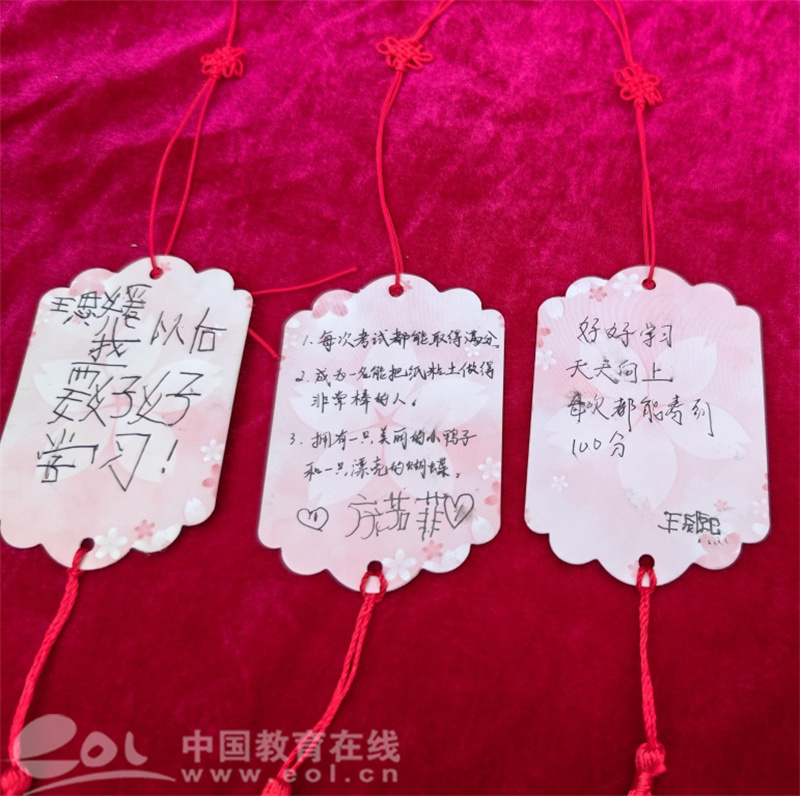 王思媛
我以后
要好好
学习!
1. 每次考试都能取得满分。
2. 成为一名能把纸粘土做得
非常棒的人。
3. 拥有一只美丽的小鸭子
和一只漂亮的蝴蝶。
茄菲
好好学习
天天向上
每次都能考到
100分
王熙
eol 中国教育在线
www.eol.cn